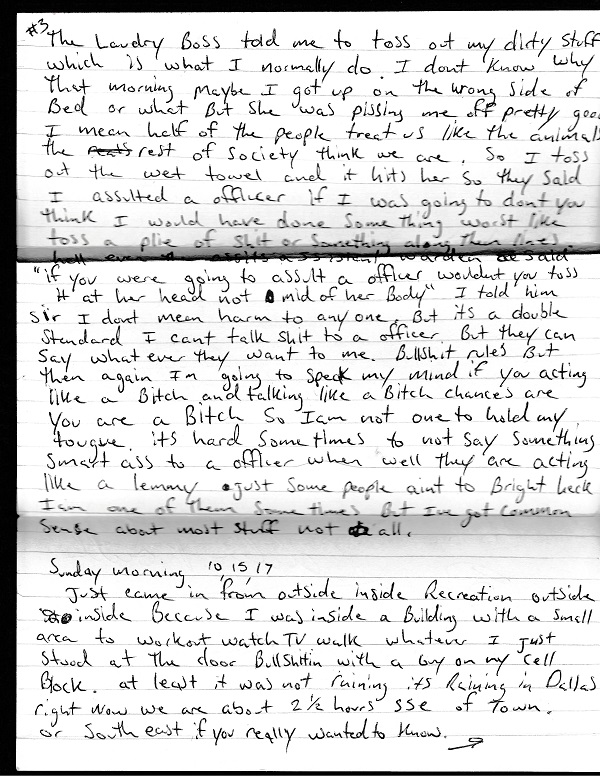 #3
The Laudry Boss told me to toss out my dirty stuff
which is what I normally do. I dont know why
that morning maybe I got up on the wrong side of
Bed or what But she was pissing me off pretty good
I mean half of the people treat us like the animals
the rest of society think we are. So I toss
out the wet towel and it hits her so they said
I assulted a officer if I was going to dont you
think I would have done something worst like
toss a plie of shit or something along them lines
warden said
"if you were going to assult a officer wouldnt you toss
it at her head not mid of her Body" I told him
Sir I dont mean harm to any one. But its a double
standard I cant talk shit to a officer But they can
say what ever they want to me. Bullshit rules But
then again Im going to speak my mind if you acting
like a Bitch and talking like a Bitch chances are
you are a Bitch So Iam not one to hold my
tougue. its hard sometimes to not say something
smart ass to a officer when well they are acting
like a lemmy just some people aint to Bright heck
Iam one of them some times But I've got common
sense about most stuff not all.
Sunday morning 10, 15, 17
Just came in from outside inside Recreation outside
inside Because I was inside a Building with a small
area to workout watch TV walk whatever I just
stood at the door Bullshitin with a Guy on my cell
Block. at least it was not raining its Raining in Dallas
right now we are about 2½ hours SSE of town.
or South east if you really wanted to know.